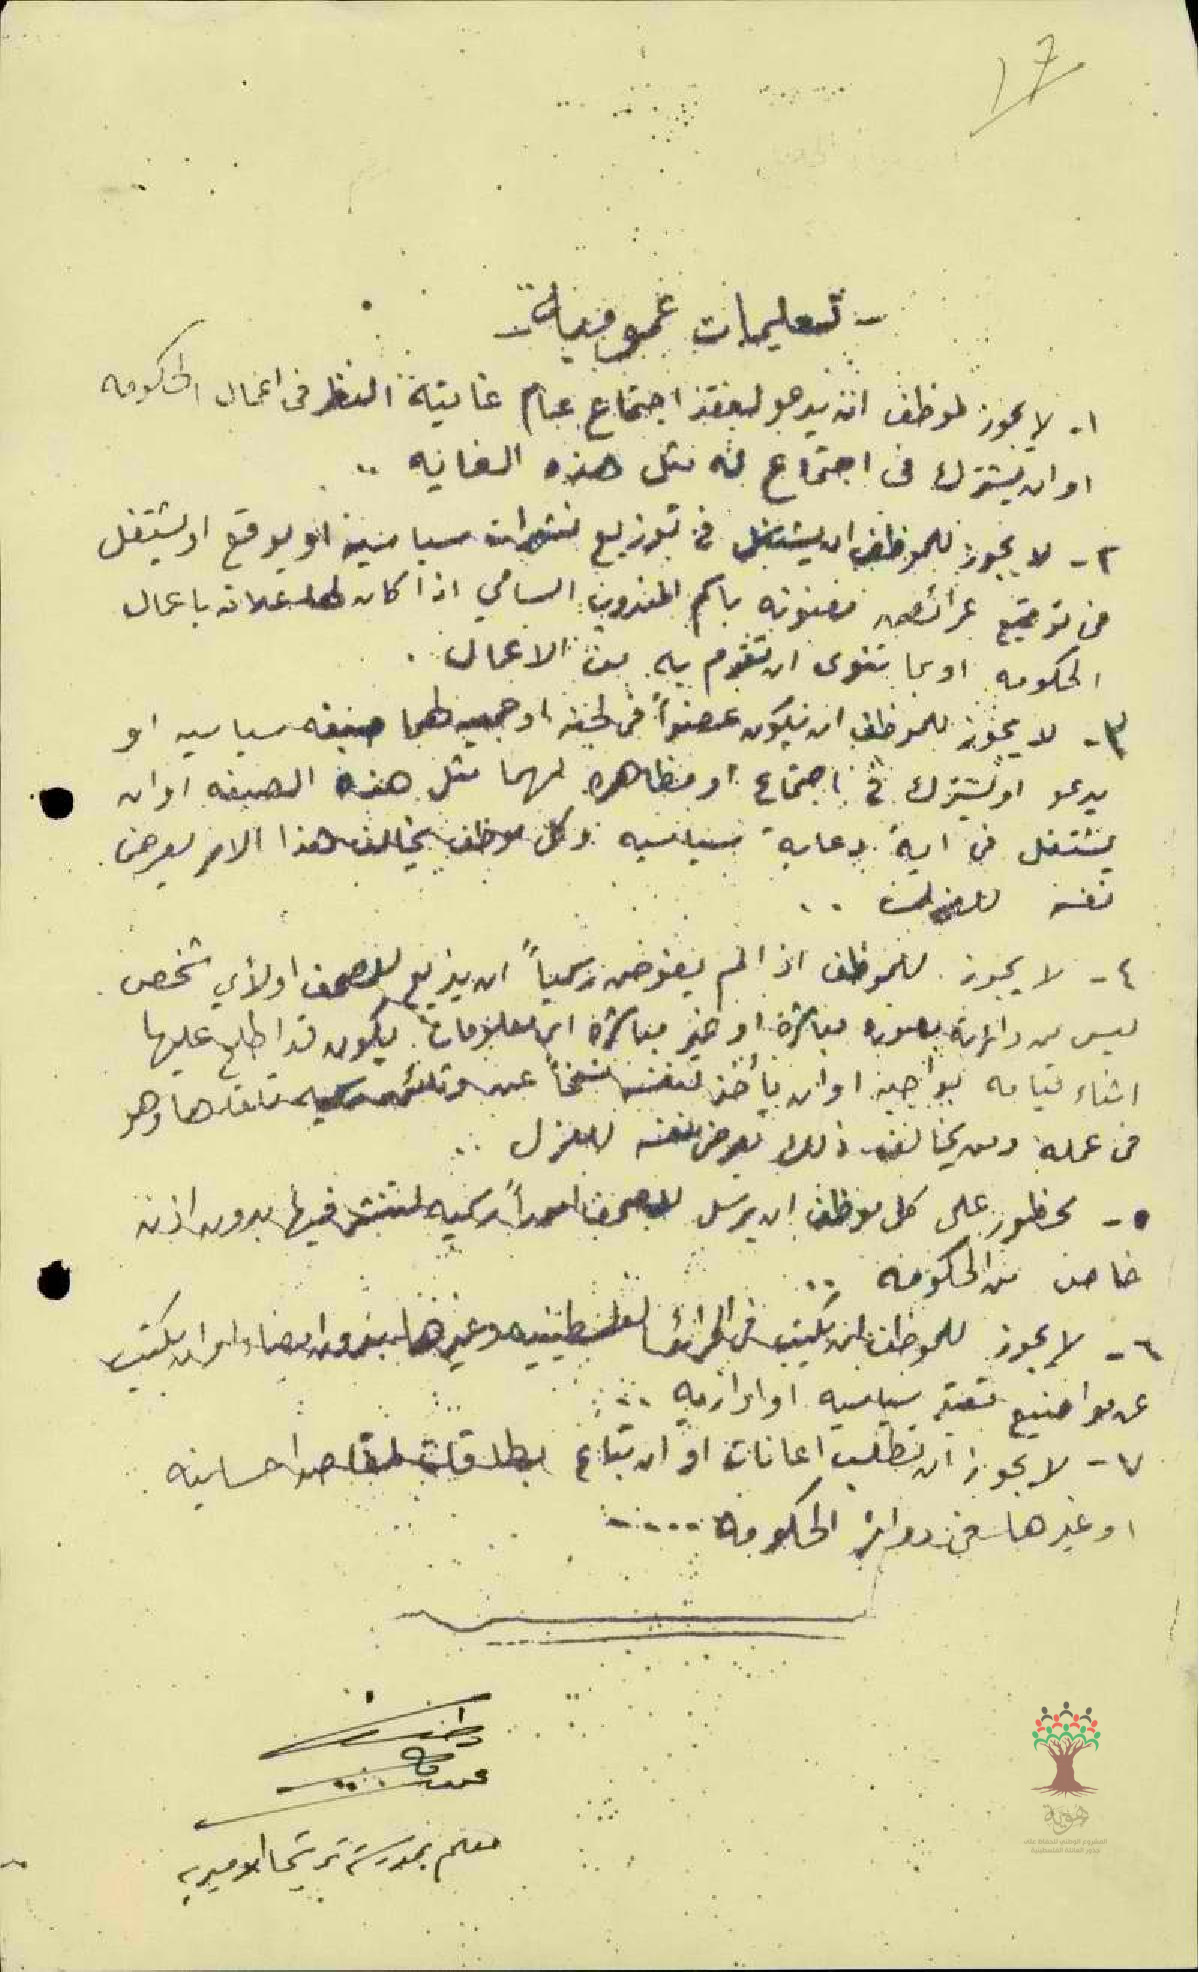 ١٧
- تعليمات عمومية -
١- لا يجوز لموظف ان يدعو لعقد اجتماع عام غايته النظر في اعمال الحكومه
او ان يشترك في اجتماع له مثل هذه الغايه ..
٢- لا يجوز للموظف ان يشتغل في توزيع نشرات سياسية او يوقع او يشتغل
في توقيع عرائض معنونه باسم المندوب السامي اذا كان لها علاقه باعمال
الحكومه او بما تنوى ان تقوم به من الاعمال .
٣- لا يجوز للموظف ان يكون عضواً في لجنه او جمعيه لهما صبغه سياسيه او
يدعو او يشترك في اجتماع او مظاهره لهما مثل هذه الصبغه او ان
يشتغل في اية دعاية سياسيه وكل موظف يخالف هذا الامر يعرض
نفسه للعزل ..
٤- لا يجوز للموظف اذا لم يفوض رسمياً ان يذيع للصحف او لأي شخص
ليس من دائرته بصوره مباشرة او غير مباشرة اي معلومات يكون قد اطلع عليها
اثناء قيامه بواجبه او ان يأخذ لنفسه نسخاً عن وثائق رسميه تلقاها وهو
في عمله ومن يخالف ذلك يعرض نفسه للعزل ..
٥- محظور على كل موظف ان يرسل للصحف اموراً رسميه لتنشر فيها بدون اذن
خاص من الحكومه ..
٦- لا يجوز للموظف ان يكتب في الجرائد الفلسطينيه وغيرها بدون امضاء او ان يكتب
عن مواضيع سياسيه او اداريه ..
٧- لا يجوز ان تطلب اعانات او ان تباع بطاقات لمقاصد احسانيه
او غيرها في دوائر الحكومه ....
معلم بمدرسة ترشيحا الاميريه
هوية
المشروع الوطني للحفاظ على
جذور العائلة الفلسطينية